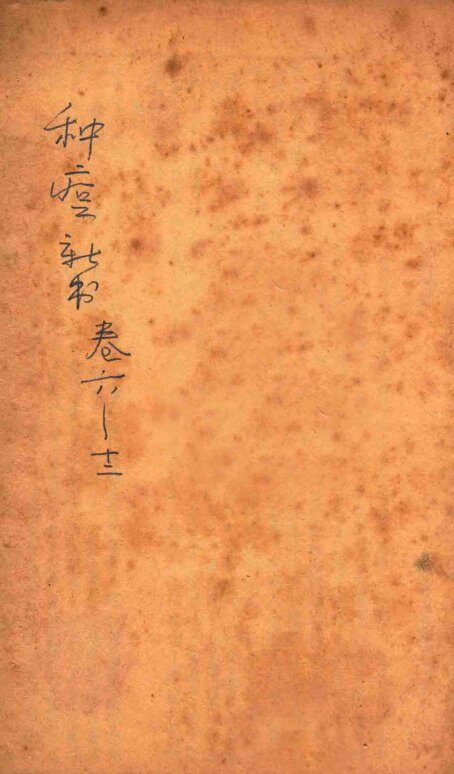 种痘新书
卷六~十二